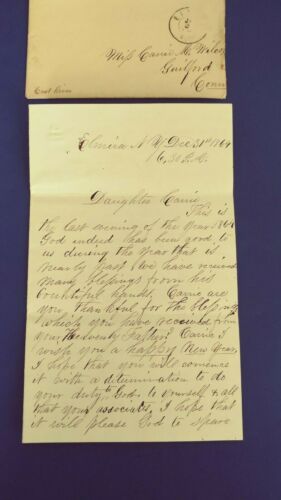 Miss Carrie M. Wilcox
Guilford
Conn
East River
Elmira N Y Dec 31st 1864
6.30 P.M.
Daughter Carrie
This is
the last evening of the Year 1864
God indeed has been good to
us during the Year that is
nearly past we have received
many blessings from his
bountiful hands, Carrie are
you thankful for the blessings
which you have received from
your Heavenly Father? Carrie I
wish you a happy New Year,
I hope that you will comence
it with a determination to do
your duty to God, to yourself & all
that your associates, I hope that
it will please God to spare